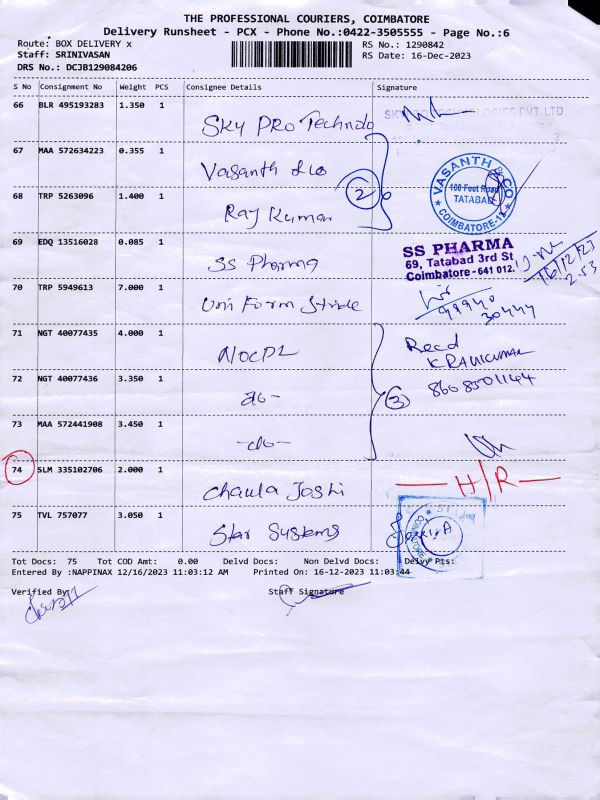 THE PROFESSIONAL COURIERS, COIMBATORE
Delivery Runsheet - PCX - Phone No.:0422-3505555 - Page No.:6
Route: BOX DELIVERY x
RS No.: 1290842
Staff: SRINIVASAN
RS Date: 16-Dec-2023
DRS No.: DCJB129084206
S No Consignment No Weight PCS Consignee Details Signature
66 BLR 495193283 1.350 1
Sky Pro Techndo
67 MAA 572634223 0.355 1
Vasanth & co
VASANTH & CO
100 Feet Road
TATABAD
COIMBATORE-12
2
68 TRP 5263096 1.400 1
Raj Kumar
69 EDQ 13516028 0.085 1
SS Pharma
SS PHARMA
69, Tatabad 3rd St
Coimbatore - 641 012.
16/12/23
2.53
70 TRP 5949613 7.000 1
Uni Form Stride
99940
30444
71 NGT 40077435 4.000 1
NOCPL
Recd
K RAVIKUMAR
8608501144
72 NGT 40077436 3.350 1
-do-
3
73 MAA 572441908 3.450 1
-do-
74 SLM 335102706 2.000 1
Chaula Joshi
H/R
75 TVL 757077 3.050 1
Star Systems
Tot Docs: 75 Tot COD Amt: 0.00 Delvd Docs: Non Delvd Docs: Delvy Pts:
Entered By :NAPPINAX 12/16/2023 11:03:12 AM Printed On: 16-12-2023 11:03:44
Verified By
Staff Signature